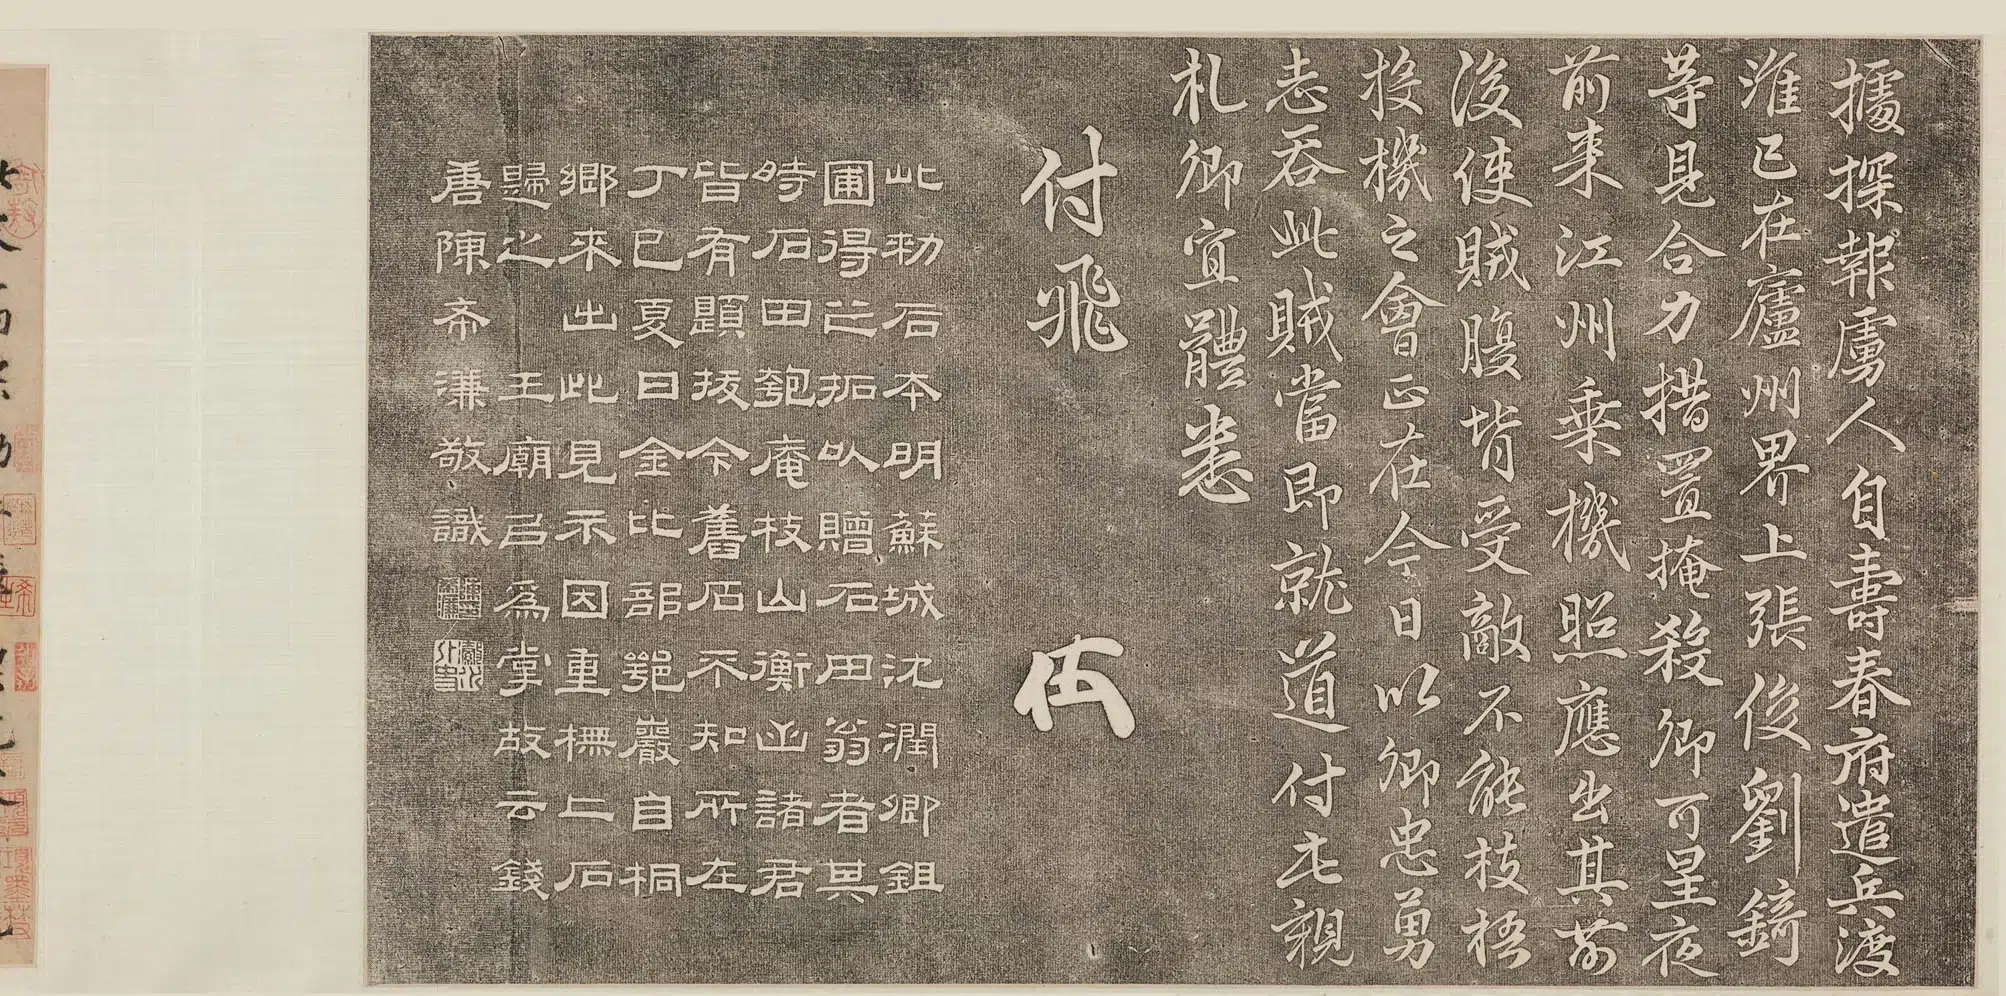 據探報虜人自壽春府遣兵渡
淮已在廬州界上張俊劉錡
等見合力措置掩殺卿可星夜
前來江州乗機照應出其前
後使賊腹背受敵不能枝梧
投機之會正在今日以卿忠勇
志吞此賊當即就道付此親
札卿宜體悉
付飛
此勑石本明蘇城沈潤卿鉏
圃得之拓以贈石田翁者其
時石田匏庵枝山衡山諸君
皆有題拔今舊石不知所在
丁巳夏日金比部鄂巖自桐
鄉來出此見示因重橅上石
歸之 王廟弓爲掌故云錢
唐陳希濂敬識